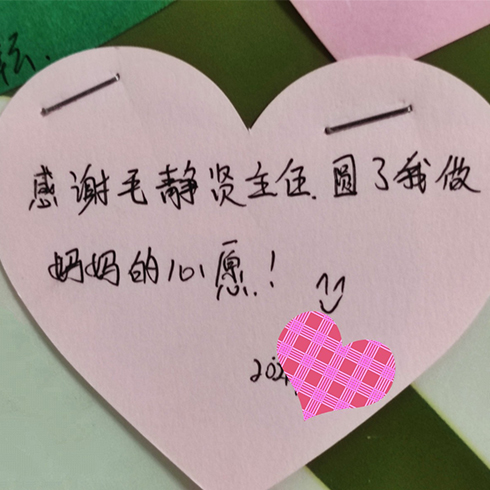 感谢毛静贤主任.圆了我做
妈妈的心愿!